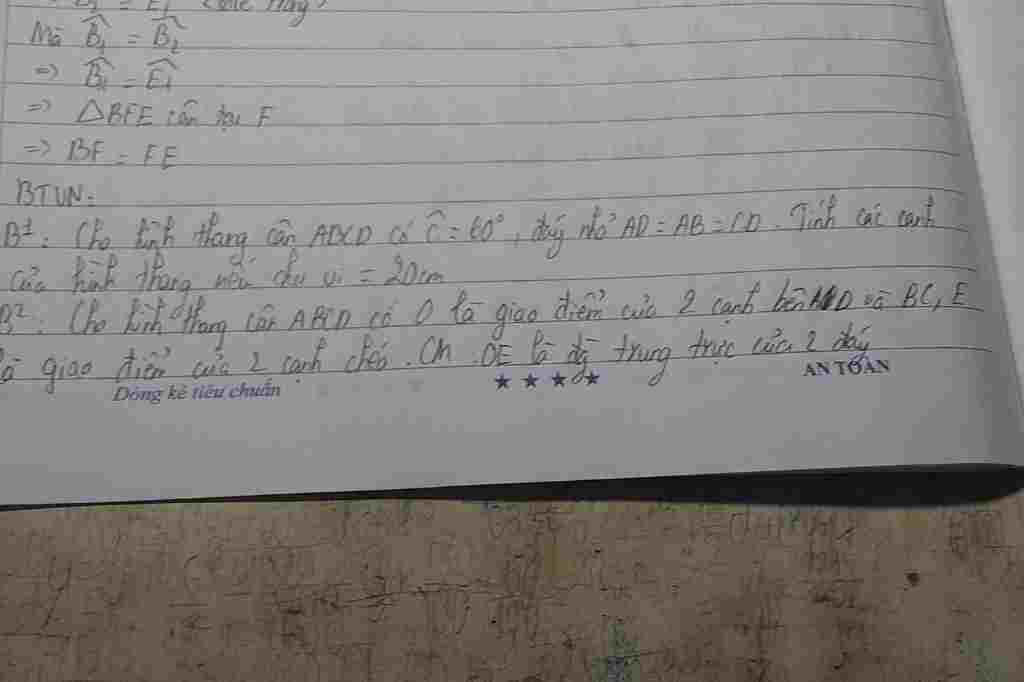 = E1 (so le trong)
Mà B1 = B2
=> B2 = E1
=> △BFE cân tại F
=> BF = FE
BTVN:
B1: Cho hình thang cân ABCD có C = 60°, đáy nhỏ AD = AB = CD. Tính các cạnh
của hình thang nếu chu vi = 20cm
B2: Cho hình thang cân ABCD có O là giao điểm của 2 cạnh bên AD và BC, E
là giao điểm của 2 cạnh chéo. CM OE là đg trung trực của 2 đáy
Dòng kẻ tiêu chuẩn ★ ★ ★ ★ AN TOÀN